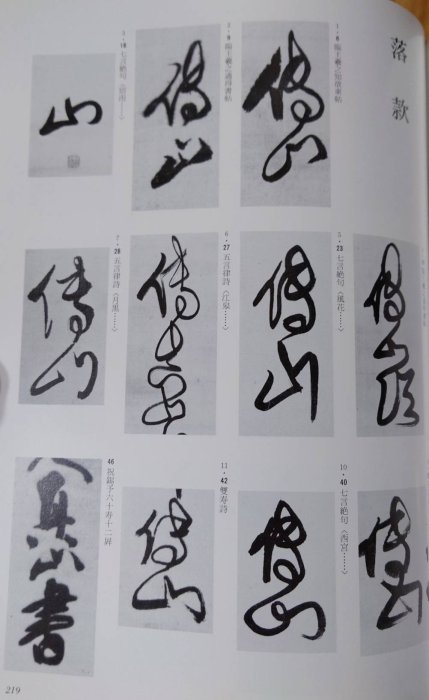 落款
1・8 臨王羲之知欲東帖
傅山
2・9 臨王羲之適得書帖
傅山
3・18 七言絶句〈宿雨……〉
山
傅山
5・23 七言絶句〈風花……〉
傅山
6・27 五言律詩〈江泉……〉
傅
7・28 五言律詩〈月黒……〉
傅山
傅山
10・40 七言絶句〈西宮……〉
傅山
11・42 雙寿詩
傅山
46 祝錫予六十寿十二屏
真山書
219